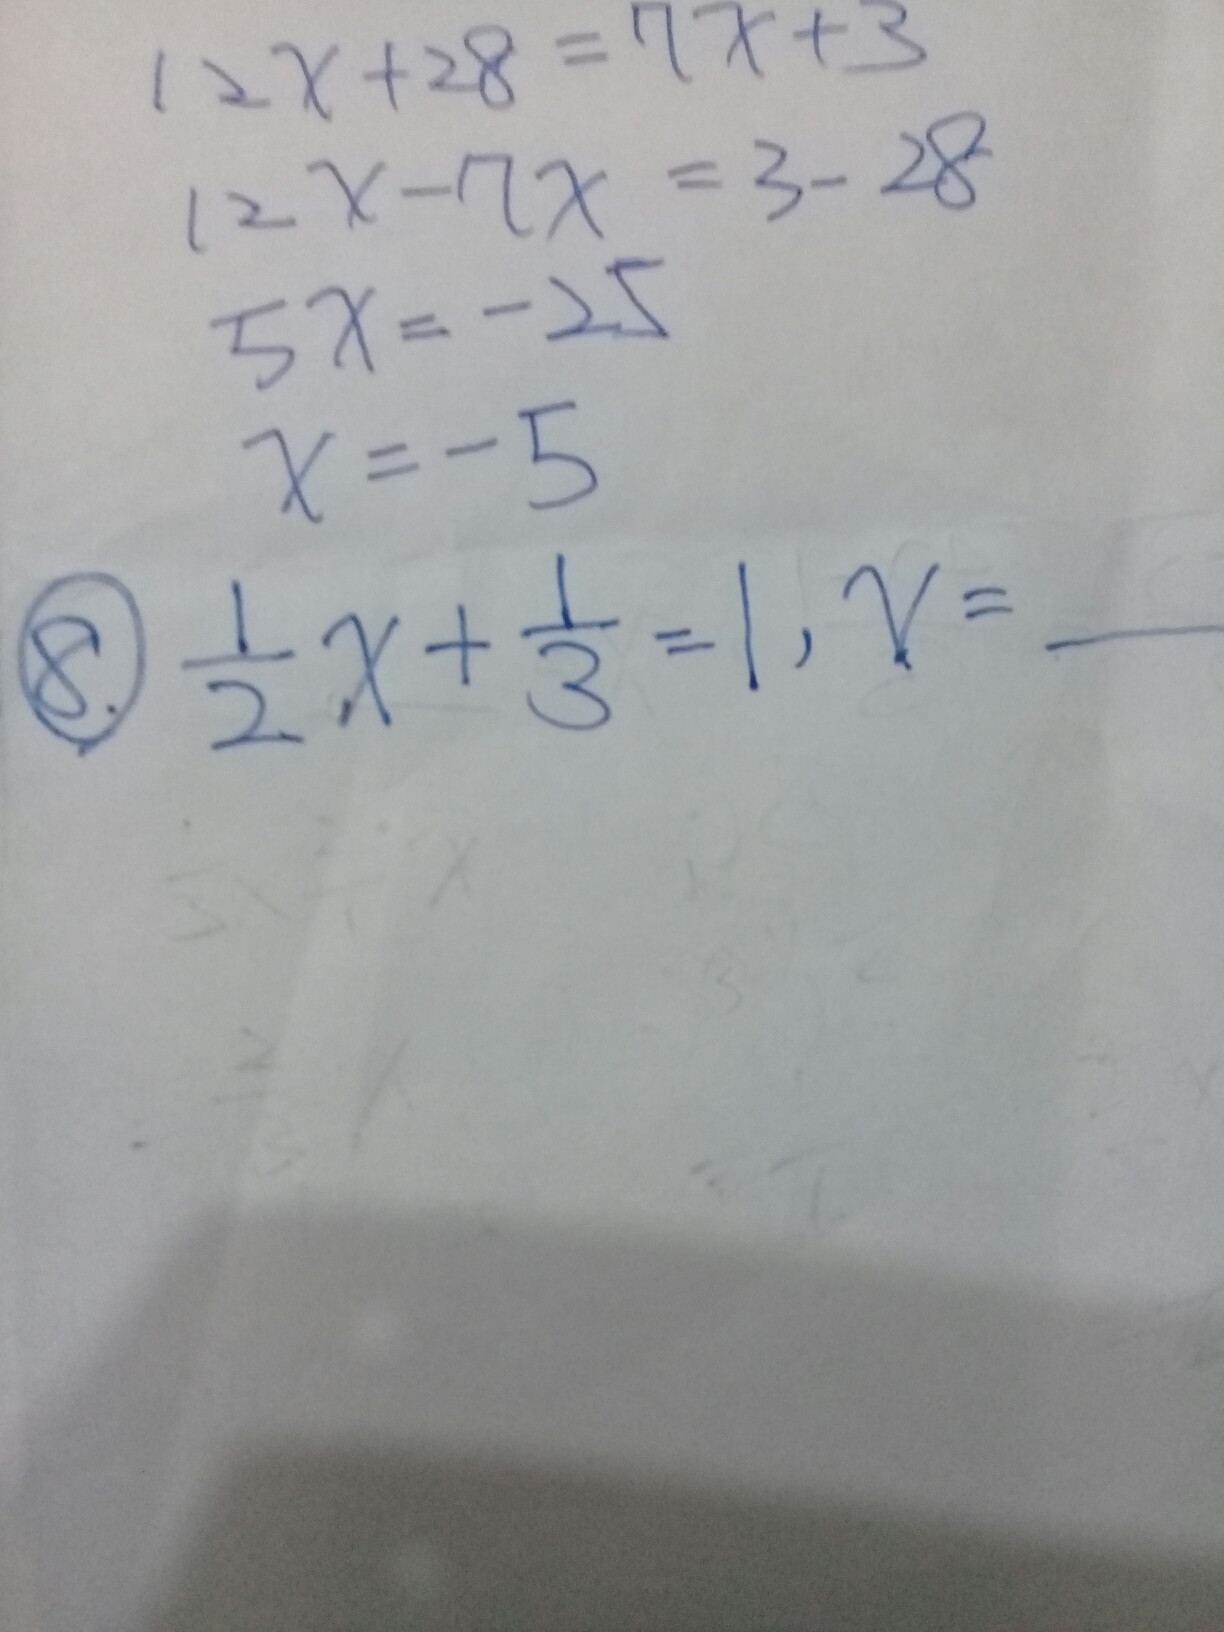 12x+28=7x+3
12x-7x=3-28
5x=-25
x=-5
8. 1/2 x + 1/3 = 1, x = ___